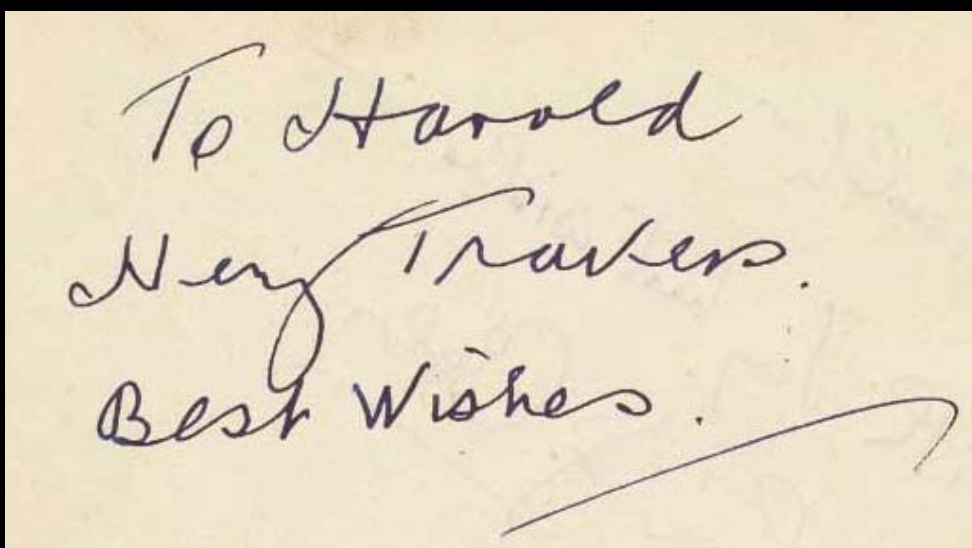 To Harold
Henry Travers.
Best Wishes.